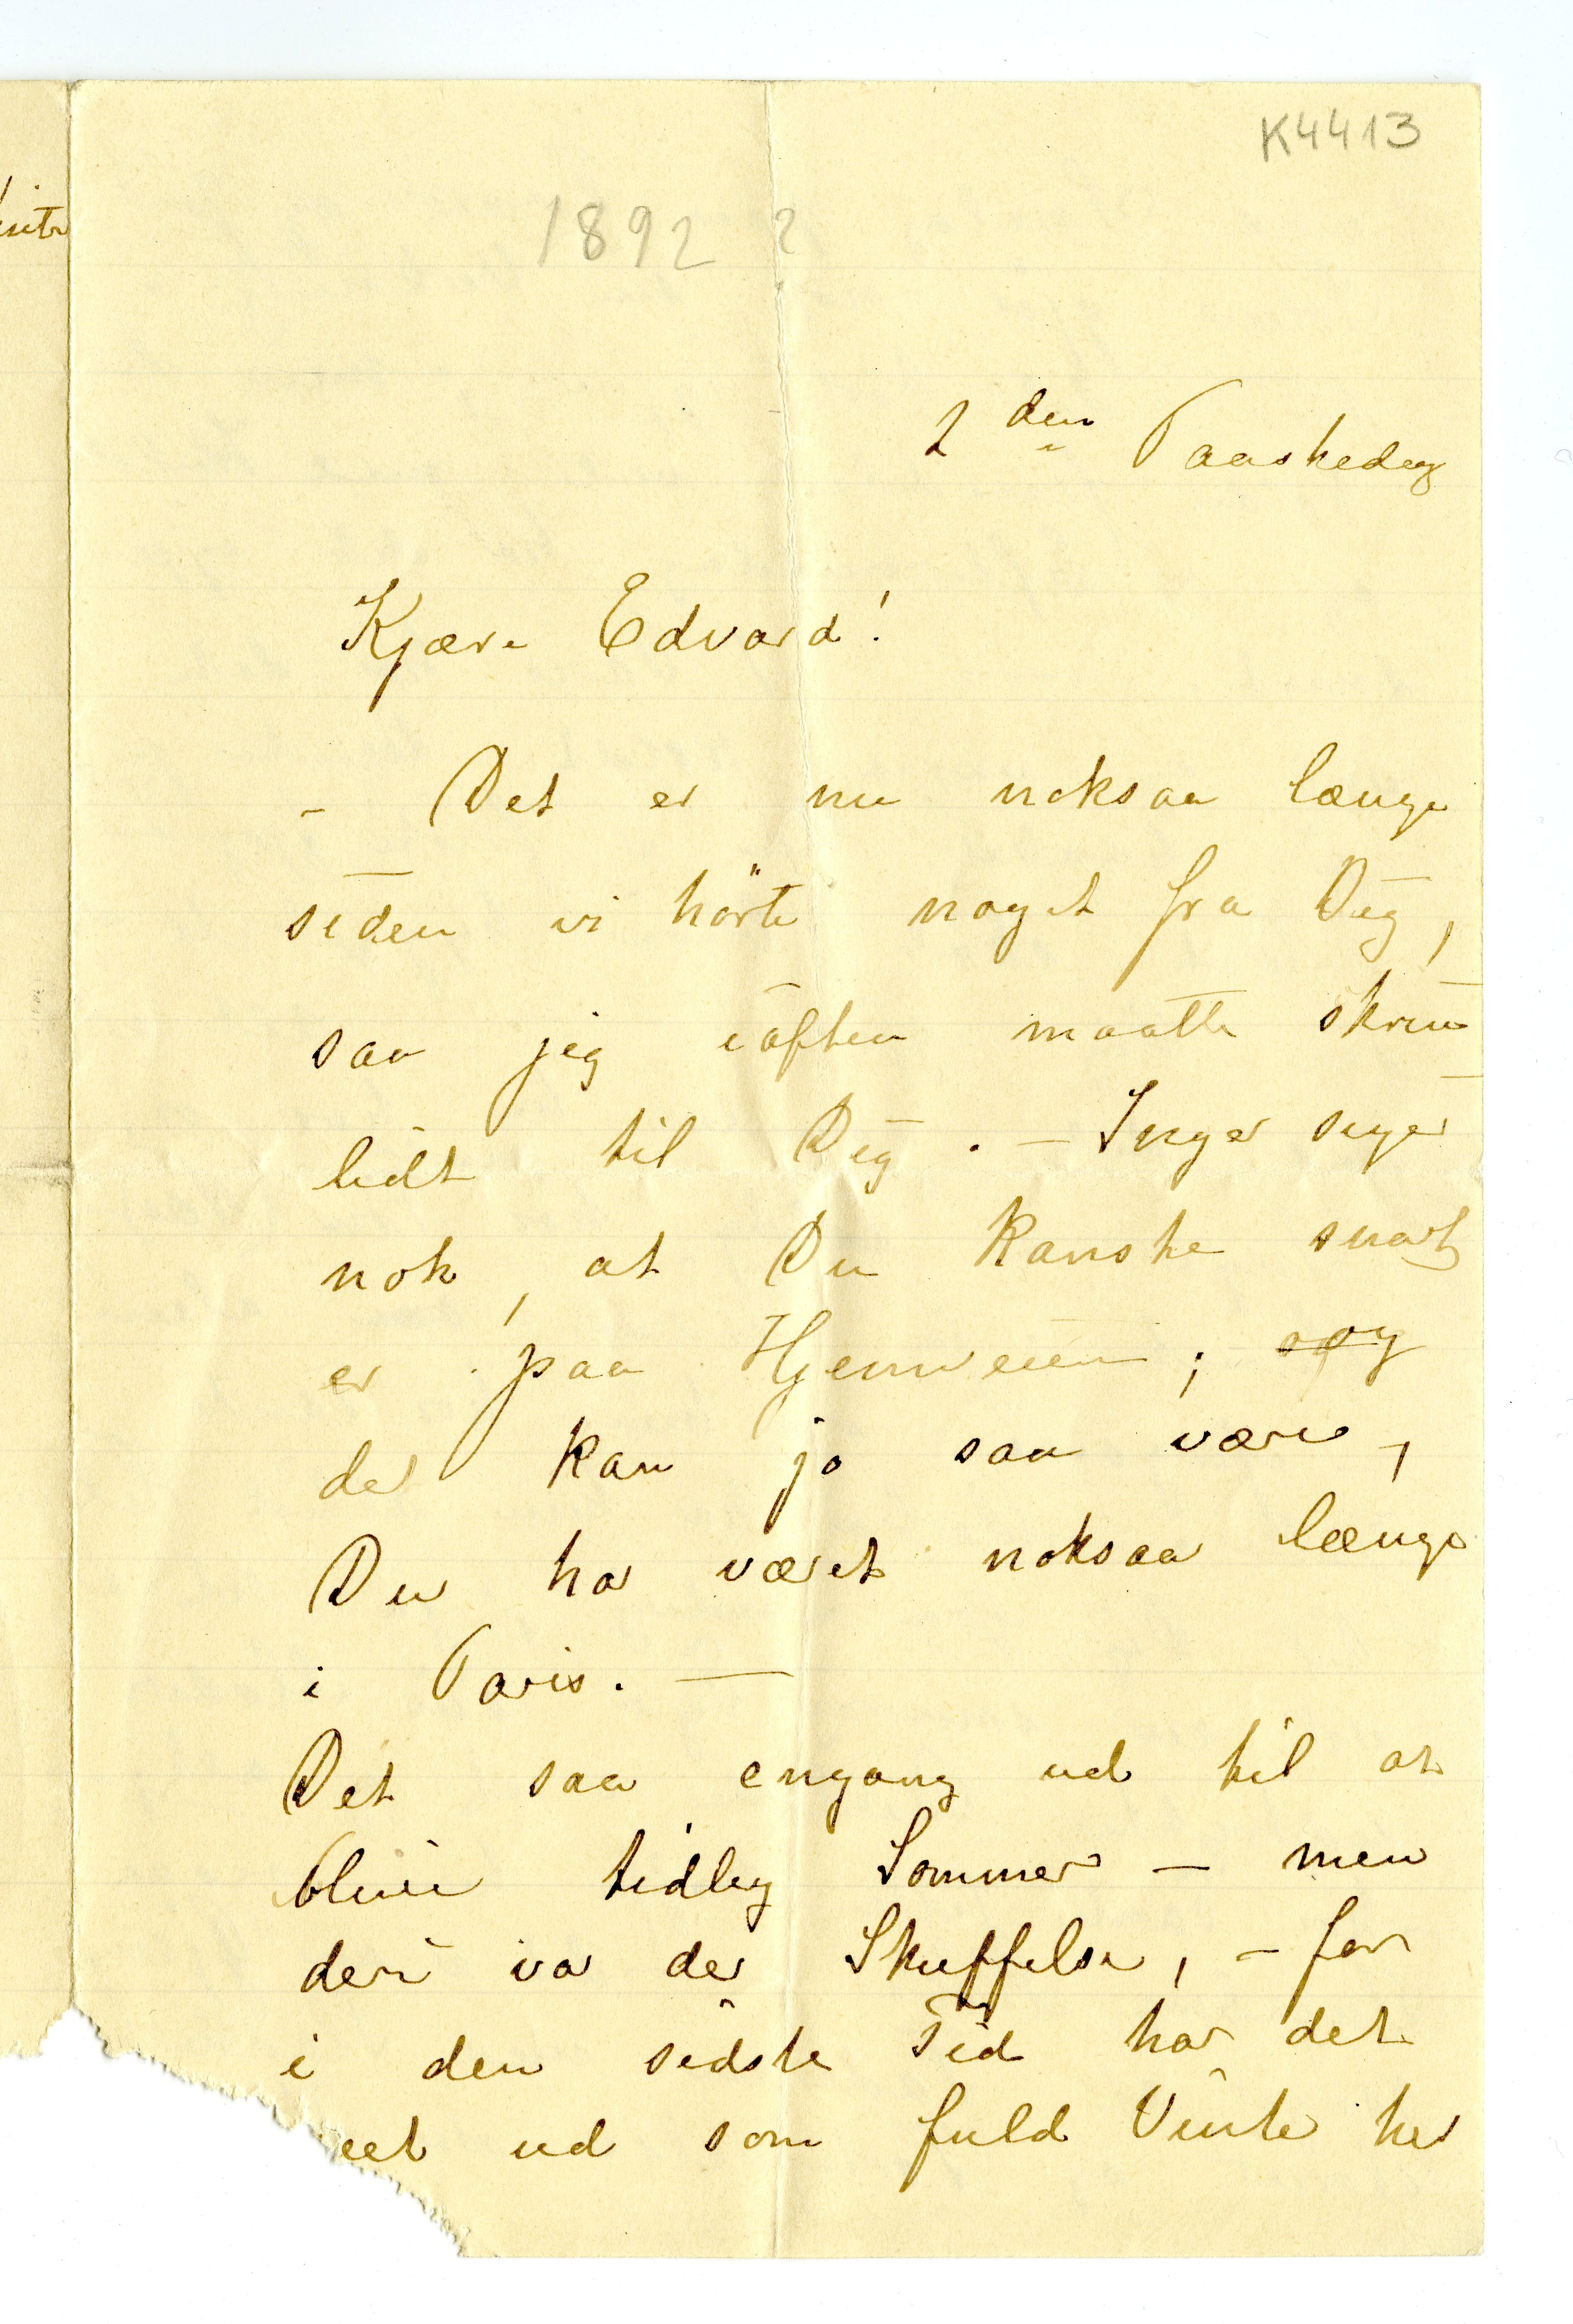 K4413
1892 ?
2 den Paaskedag
Kjære Edvard!
- Det er nu noksaa længe
siden vi hörte noget fra Dig,
saa jeg iaften maatte skrive
lidt til Dig. – Inger siger
nok, at Du kanske snart
er paa Hjemveien; og
det kan jo saa være,
Du har været noksaa længe
i Paris. —
Det saa engang ud til at
blive tidlig Sommer – men
deri var der Skuffelse, – for
i den sidste Tid har det
seet ud som fuld Vinter her